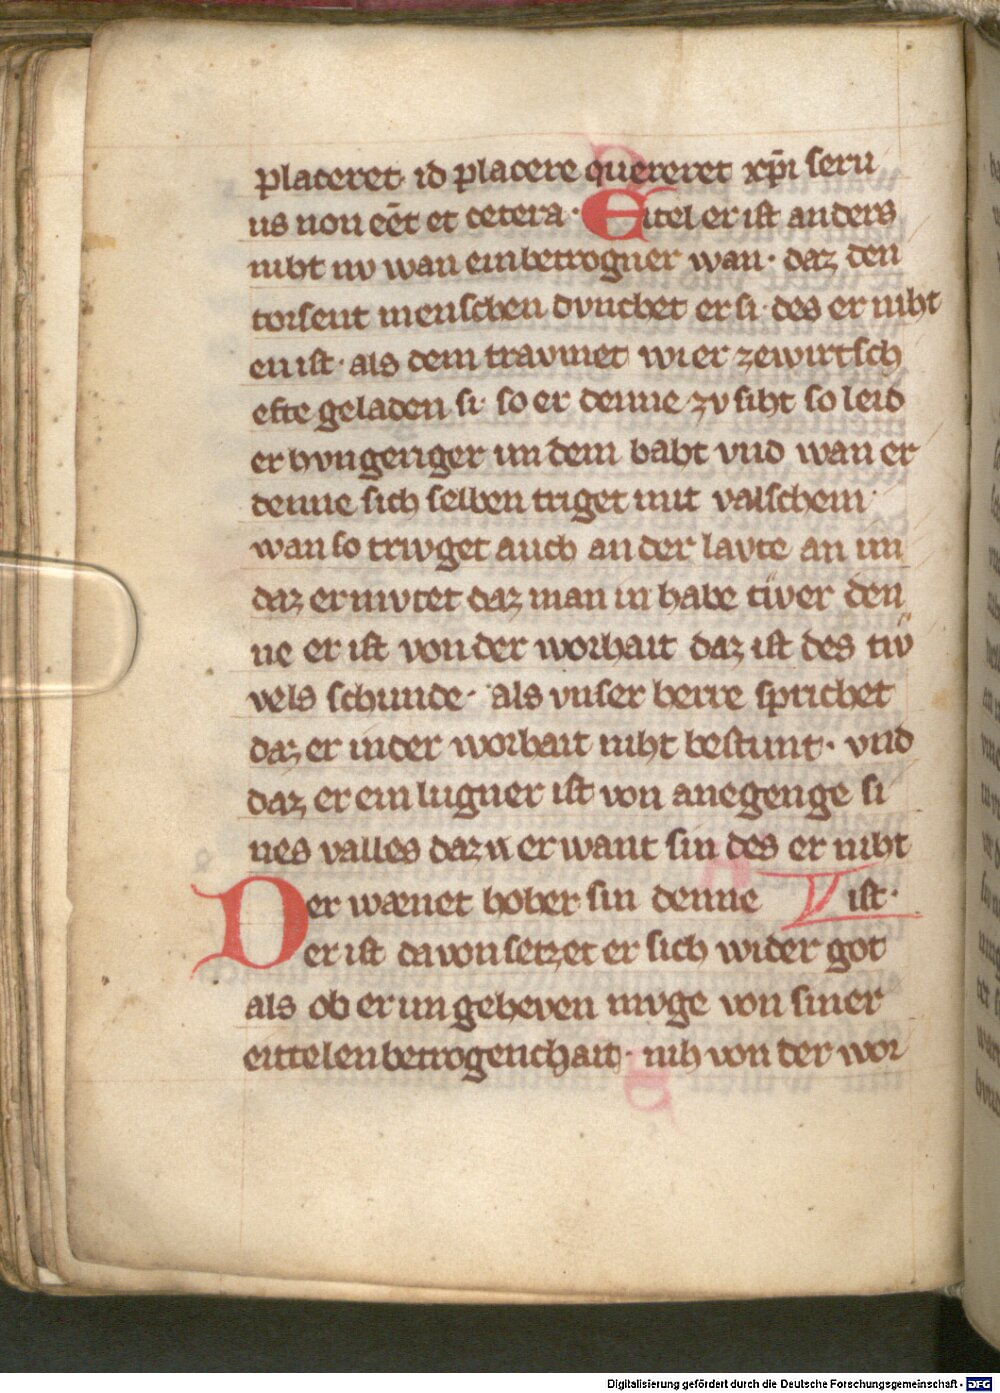 placeret· id placere quereret xp̄i seru
us non eēt et cetera· Eitel er ist anders
niht nv wan ein betrogner wan· daz den
torsent menschen dvnchet er si· des er niht
en ist· als dem travmet wi er ze wirtsch
efte geladen si· so er denne zv siht so leid
er hvngeriger im dem baht vnd wan er
denne sich selben triget mit valschem·
wan so trivget auch an der lavte an im
daz er mvtet daz man in habe tiwer den
ne er ist von der worhait daz ist des tiv̈
vels schunde· als vnser herre sprichet
daz er in der worhait niht bestunt· vnd
daz er ein lugner ist von anegenge si
nes valles dazu er want sin des er niht
Der wænet hoher sin denne V ist·
er ist da von setzet er sich wider got
als ob er im geheven mvge von siner
eittelen betrogenchait· nih von der wor
Digitalisierung gefördert durch die Deutsche Forschungsgemeinschaft - DFG